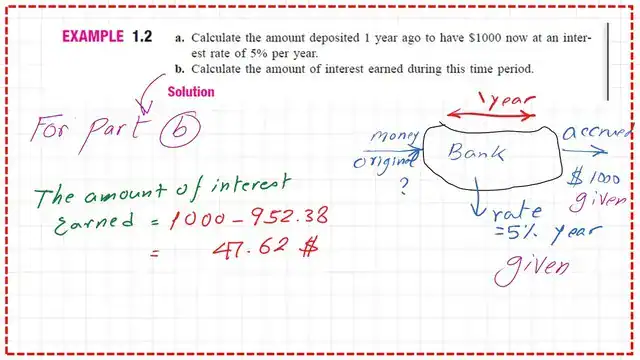 EXAMPLE 1.2
a. Calculate the amount deposited 1 year ago to have $1000 now at an inter-
est rate of 5% per year.
b. Calculate the amount of interest earned during this time period.
Solution
For Part b
The amount of interest
Earned = 1000 - 952.38
= 47.62 $
1 year
money
original
?
Bank
accrued
$ 1000
given
rate
=5% year
given